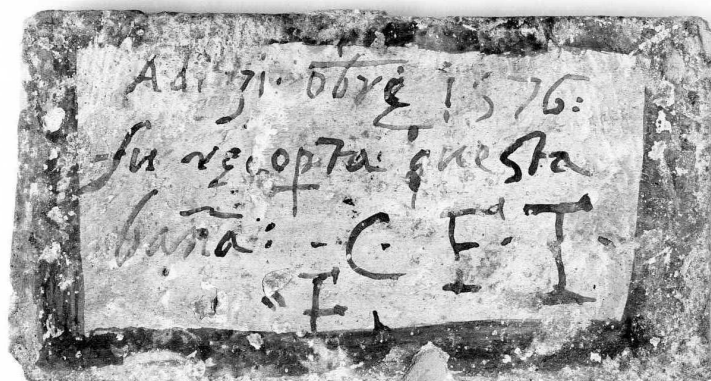 Adi 31 · obrẹ 1576:
fu recopta questa
baña: · C · F · I ·
F